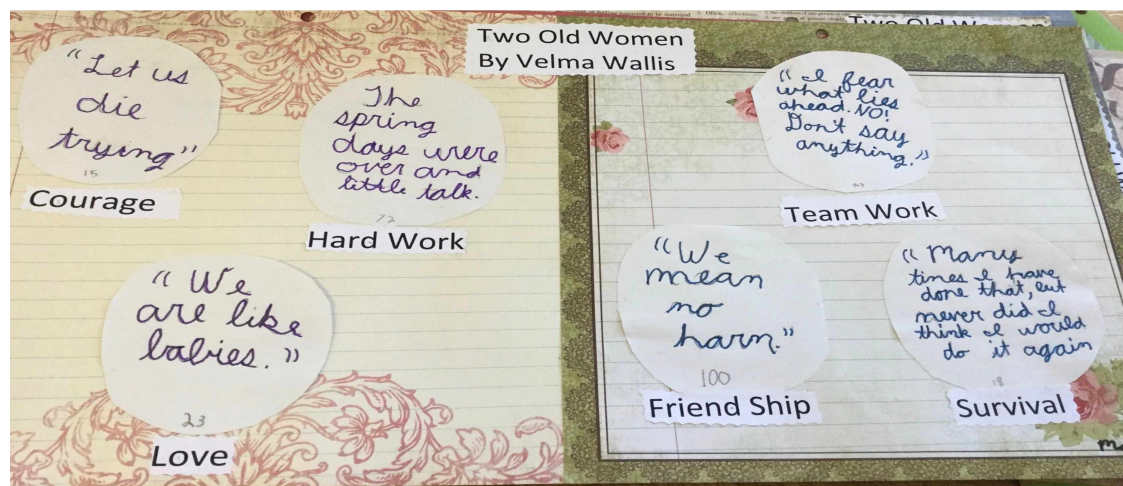 Two Old Women
By Velma Wallis
"Let us
die
trying"
15
Courage
The
spring
days were
over and
little talk.
72
Hard Work
"We
are like
babies."
23
Love
"I fear
what lies
ahead. NO!
Don't say
anything."
Team Work
"We
mean
no
harm."
100
Friend Ship
"Many
times I have
done that, but
never did I
think I would
do it again
18
Survival
Two Old